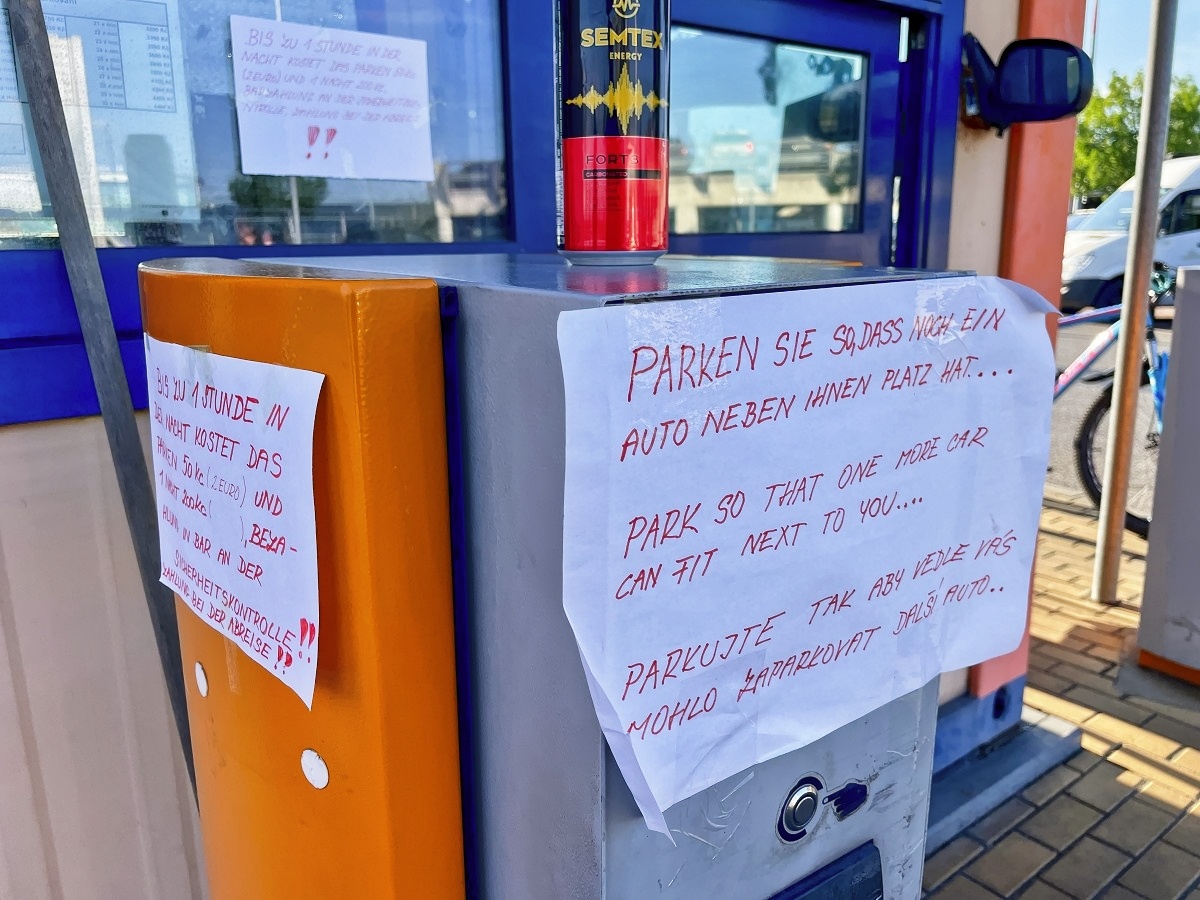 BIS ZU 1 STUNDE IN DER
NACHT KOSTET DAS PARKEN
(2 EURO) UND 1 NACHT
BEZAHLUNG IN BAR AN DER
ZAHLUNG BEI DER ABREISE
!!
SEMTEX
ENERGY
FORTE
CARBONATED
BIS ZU 1 STUNDE IN
DER NACHT KOSTET DAS
PARKEN 50kc (2 EURO) UND
1 NACHT 200kc ( ), BEZA-
HLUNG IN BAR AN DER
SICHERHEITSKONTROLLE!!
ZAHLUNG BEI DER ABREISE!!
PARKEN SIE SO,DASS NOCH EIN
AUTO NEBEN IHNEN PLATZ HAT....
PARK SO THAT ONE MORE CAR
CAN FIT NEXT TO YOU....
PARKUJTE TAK ABY VEDLE VÁS
MOHLO ZAPARKOVAT DALŠÍ AUTO..